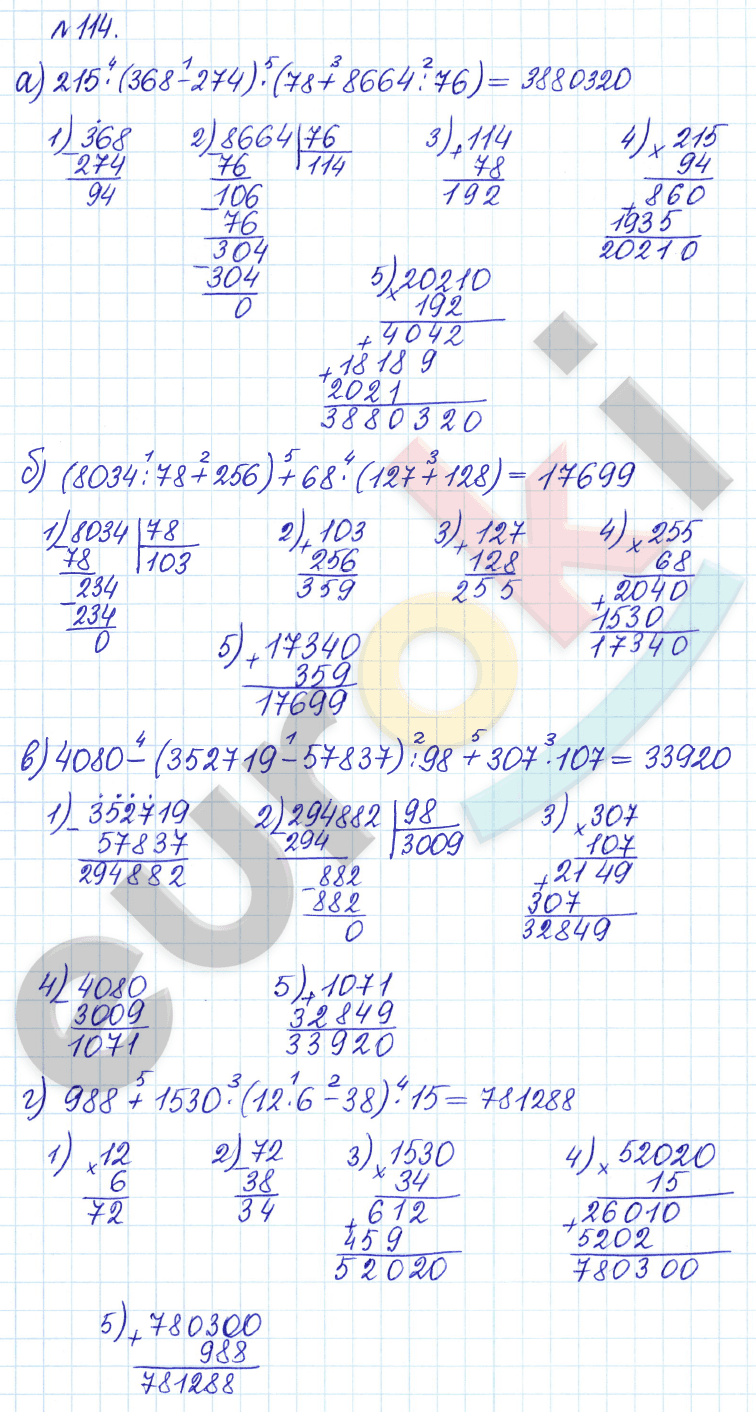 №114.
а) 215·(368-274)·(78+8664:76)=3880320
4 1 5 3 2
1) 368 2) 8664 | 76 3) 114 4) 215
- 274 - 76 114 + 78 × 94
94 106 192 860
- 76 + 1935
304 20210
- 304
0
5) 20210
× 192
4042
+ 18189
+ 2021
3880320
б) (8034:78+256)+68·(127+128)=17699
1 2 5 4 3
1) 8034 | 78 2) 103 3) 127 4) 255
- 78 103 + 256 + 128 × 68
234 359 255 2040
- 234 + 1530
0 17340
5) 17340
+ 359
17699
в) 4080-(352719-57837):98+307·107=33920
4 1 2 5 3
1) 352719 2) 294882 | 98 3) 307
- 57837 - 294 3009 × 107
294882 882 2149
- 882 + 307
0 32849
4) 4080 5) 1071
- 3009 + 32849
1071 33920
г) 988+1530·(12·6-38)·15=781288
5 3 1 2 4
1) 12 2) 72 3) 1530 4) 52020
× 6 - 38 × 34 × 15
72 34 612 26010
+ 459 + 5202
52020 780300
5) 780300
+ 988
781288
euroki